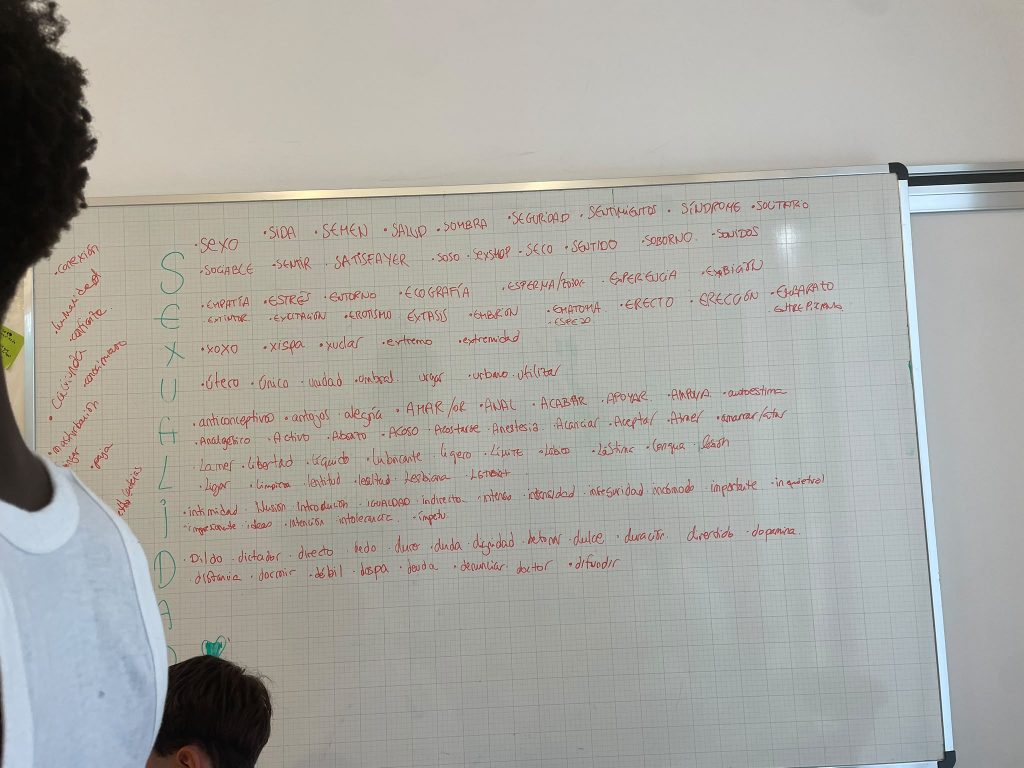 ·SEXO ·SIDA ·SEMEN ·SALUD ·SOMBRA ·SEGURIDAD ·SENTIMIENTOS ·SÍNDROME ·SOLITARIO
S
·SOCIABLE ·SENTIR SATISFAYER ·SOSO ·SEXSHOP ·SECO ·SENTIDO ·SOBORNO ·SONIDOS
·EMPATÍA ·ESTRÉS ·ENTORNO ·ECOGRAFÍA ·ESPERMA/ ·EXPERIENCIA ·EXIBICIÓN
E
·EXTINTOR ·EXCITACIÓN ·EROTISMO ÉXTASIS ·EMBRIÓN ·EMATOMA ·ERECTO ·ERECCIÓN ·EMBARATO
·ESPEJO ENTREPIERNA
X
·XOXO ·xispa ·xuclar ·extremo ·extremidad
U
·Útero ·único ·unidad ·umbral urgar ·urbano utilizar
A
·anticonceptivo ·antojos alegría ·AMAR/OR ·ANAL ·ACABAR APOYAR ·autoestima
·Analgésico ·Activo Aborto ·ACOSO Acostarse Anestesia Acariciar Aceptar Atraer ·amarrar/atar
L
·Lamer ·libertad ·líquido ·lubricante ligero ·LÍMITE ·LÁBIO ·Lástima ·Lengua ·lesión
·lugar ·limpieza lentitud ·lealtad lesbiana
i
·intimidad ilusión introducción ·IGUALDAD indirecta ·intenso intensidad inseguridad incómodo importante ·inquietud
·impresionante ideas ·intención intolerancia ·ímpetu
D
·Dildo ·dictador ·directo dedo duro ·duda dignidad detonar dulce ·duración divertido ·dopamina
distancia ·dormir ·débil ·deuda ·denunciar doctor ·difundir
A
·conexión
·humanidad
·caliente
·conocimiento
·masturbación
·paja